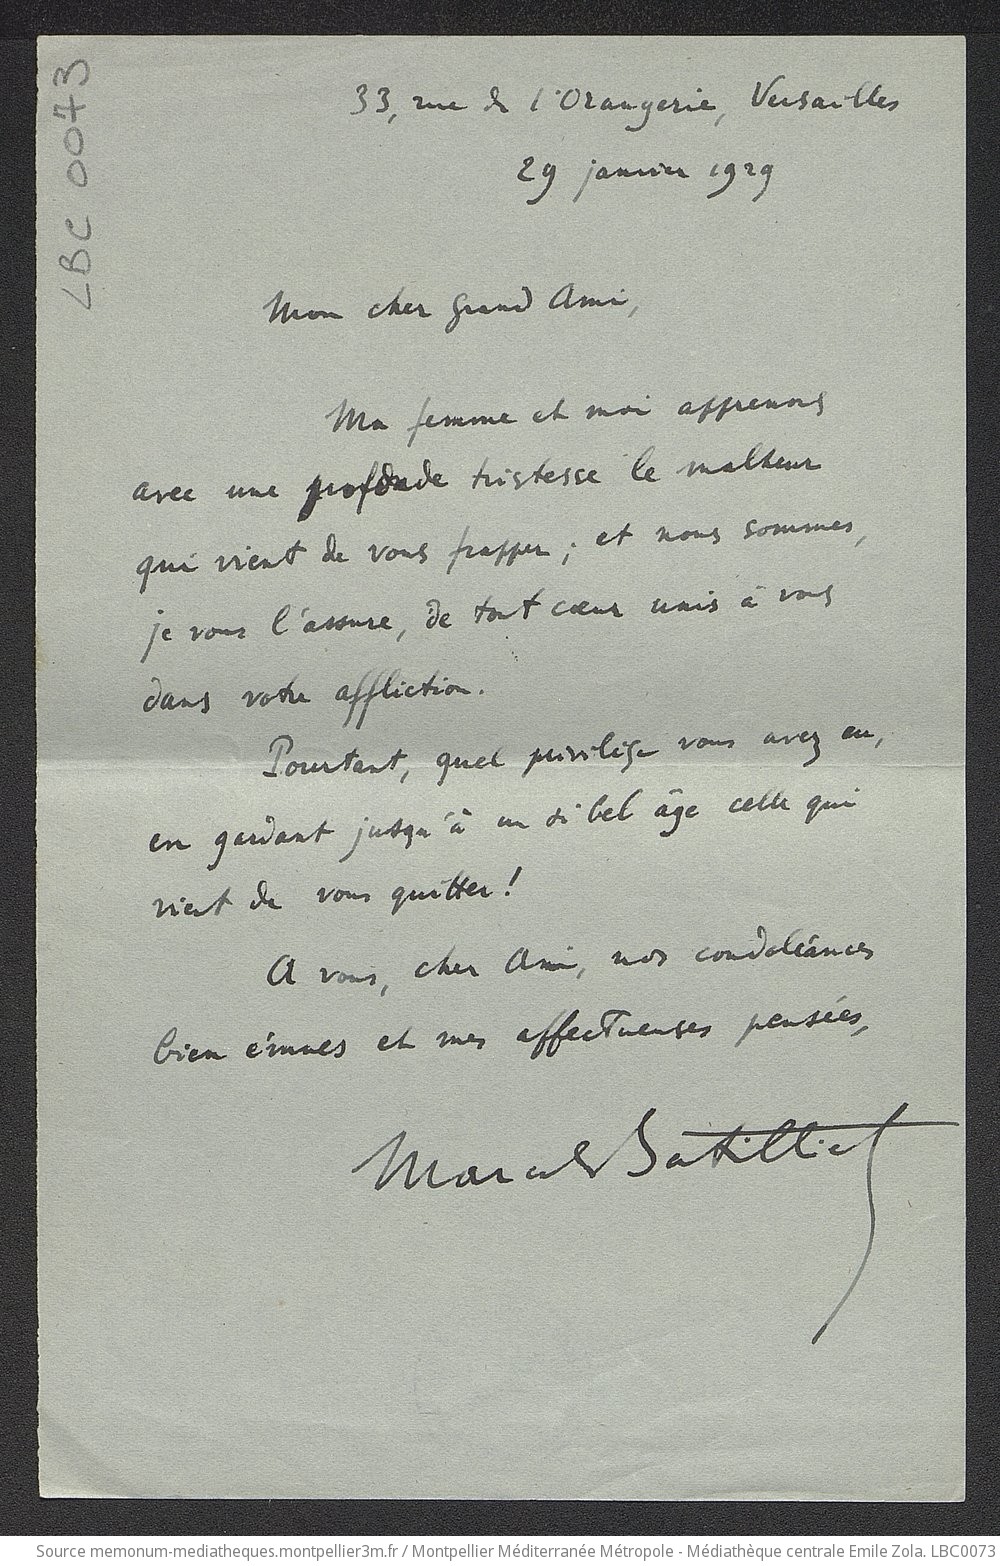 LBC 0043
33, rue de l'Orangerie, Versailles
29 janvier 1929
Mon cher grand Ami,
Ma femme et moi apprenons
avec une profonde tristesse le malheur
qui vient de vous frapper ; et nous sommes,
je vous l'assure, de tout cœur unis à vous
dans votre affliction.
Pourtant, quel privilège vous avez eu,
en gardant jusqu'à un si bel âge celle qui
vient de vous quitter !
A vous, cher Ami, nos condoléances
bien émues et mes affectueuses pensées,
Marcel Batilliat
Source memonum-mediatheques.montpellier3m.fr / Montpellier Méditerranée Métropole - Médiathèque centrale Emile Zola. LBC0073